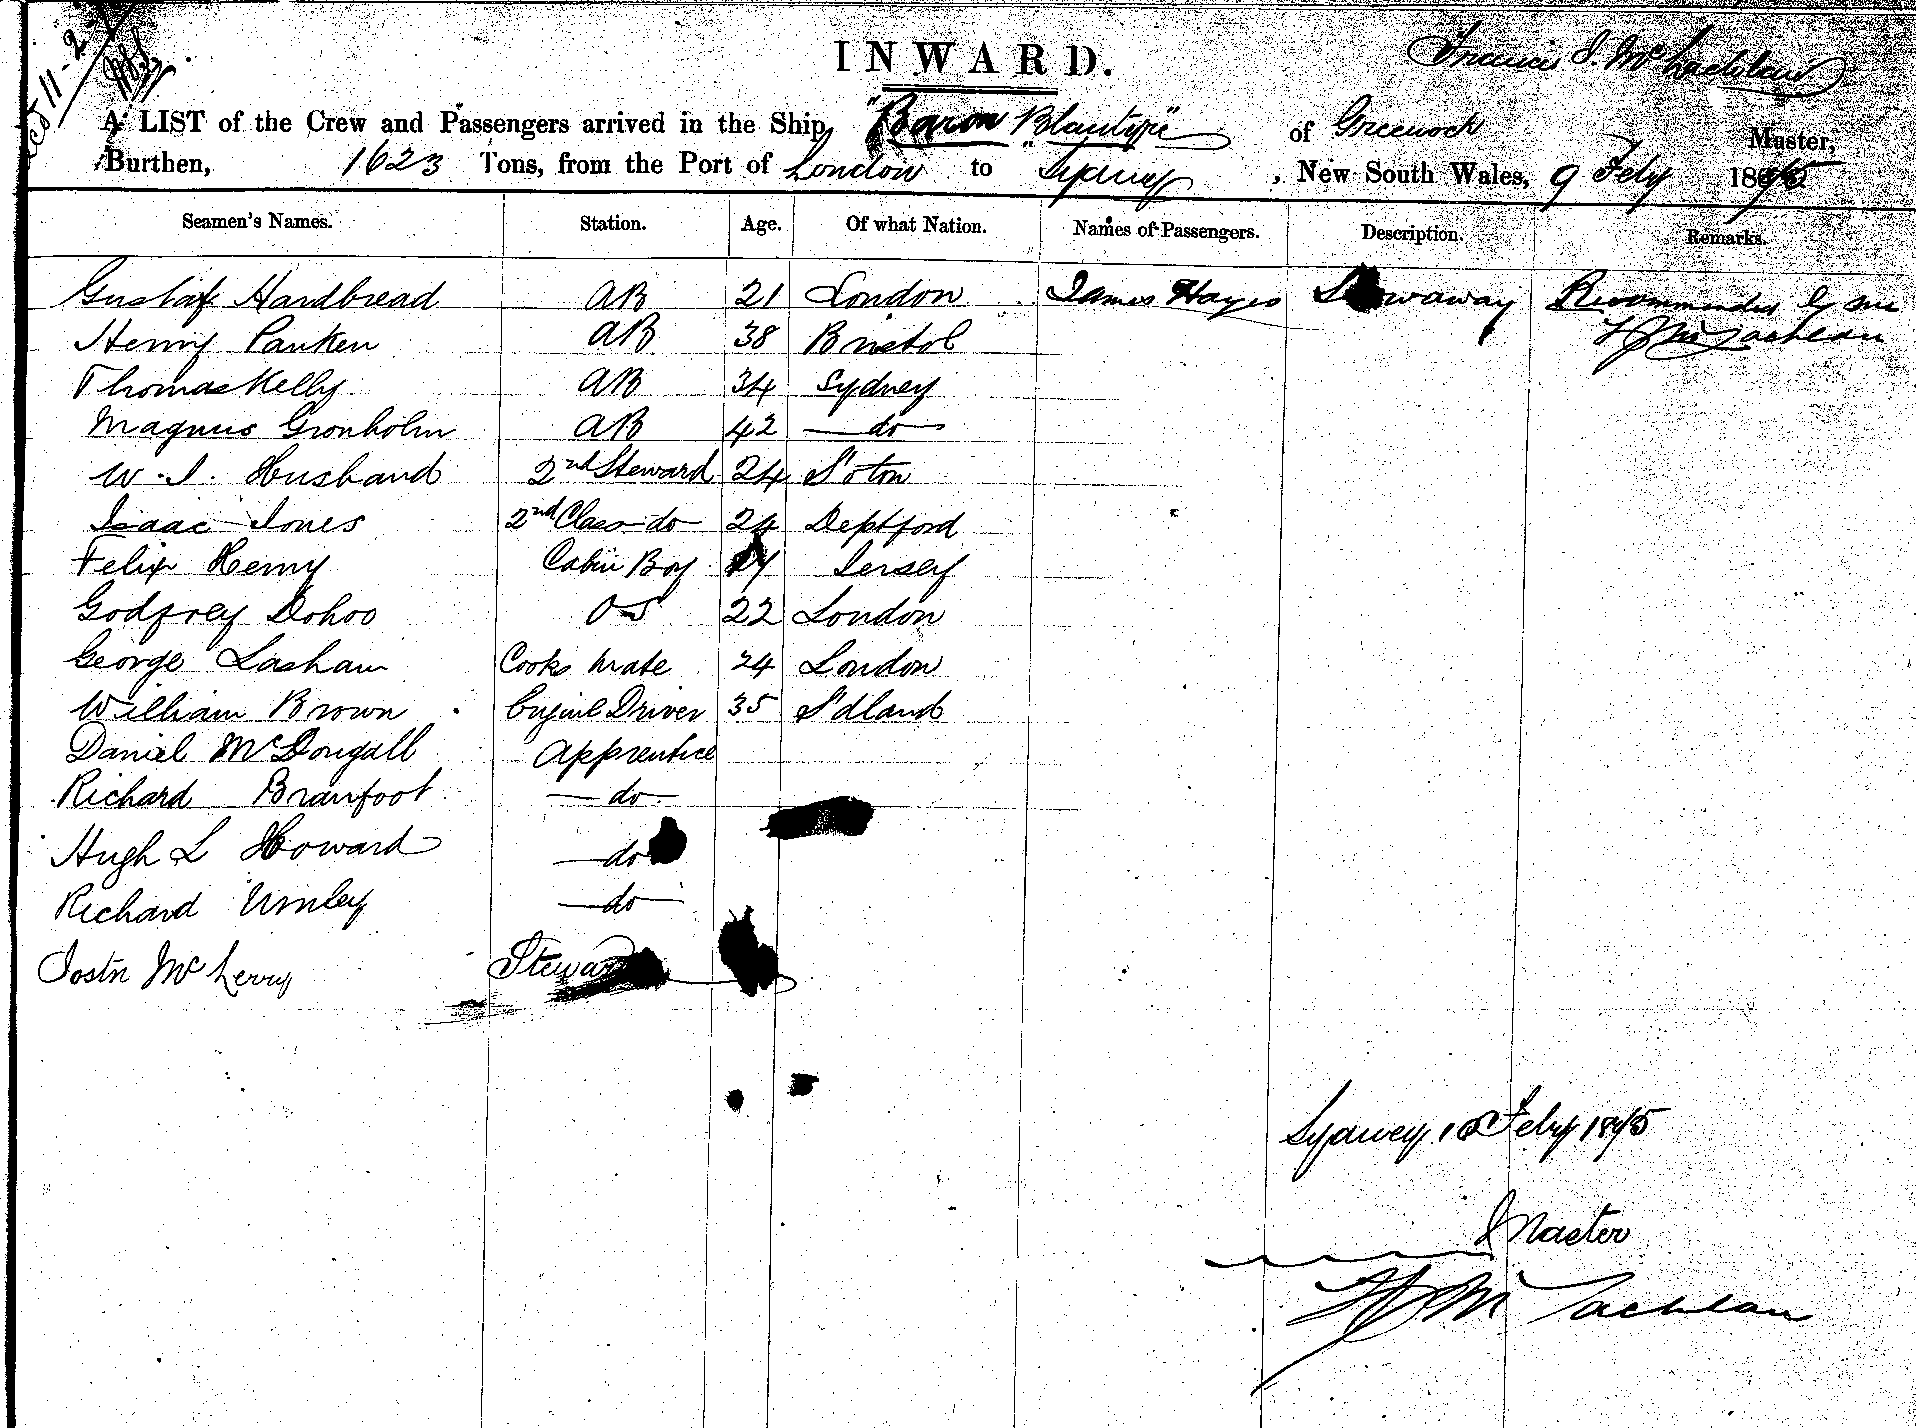 INWARD.
Francis S. McLachlan
A LIST of the Crew and Passengers arrived in the Ship, "Baron Blantyre" of Greenock Master,
Burthen, 1623 Tons, from the Port of London to Sydney, New South Wales, 9 Feby 1875
Seamen's Names. Station. Age. Of what Nation. Names of Passengers. Description. Remarks.
Gustaf Hardbread AB 21 London James Hayes Stowaway Recommended by me
Henry Panken AB 38 Bristol McLachlan
Thomas Kelly AB 34 Sydney
Magnus Gronholm AB 42 do
W. J. Husband 2nd Steward 24 S'oton
Isaac Jones 2nd Class do 24 Deptford
Felix Henry Cabin Boy Jersey
Godfrey Dohoo OS 22 London
George Lasham Cooks Mate 24 London
William Brown Engine Driver 35 S'dland
Daniel McDougall Apprentice
Richard Branfoot do
Hugh L Howard do
Richard Umley do
Steward
Sydney, 10 Feby 1875
Master
McLachlan